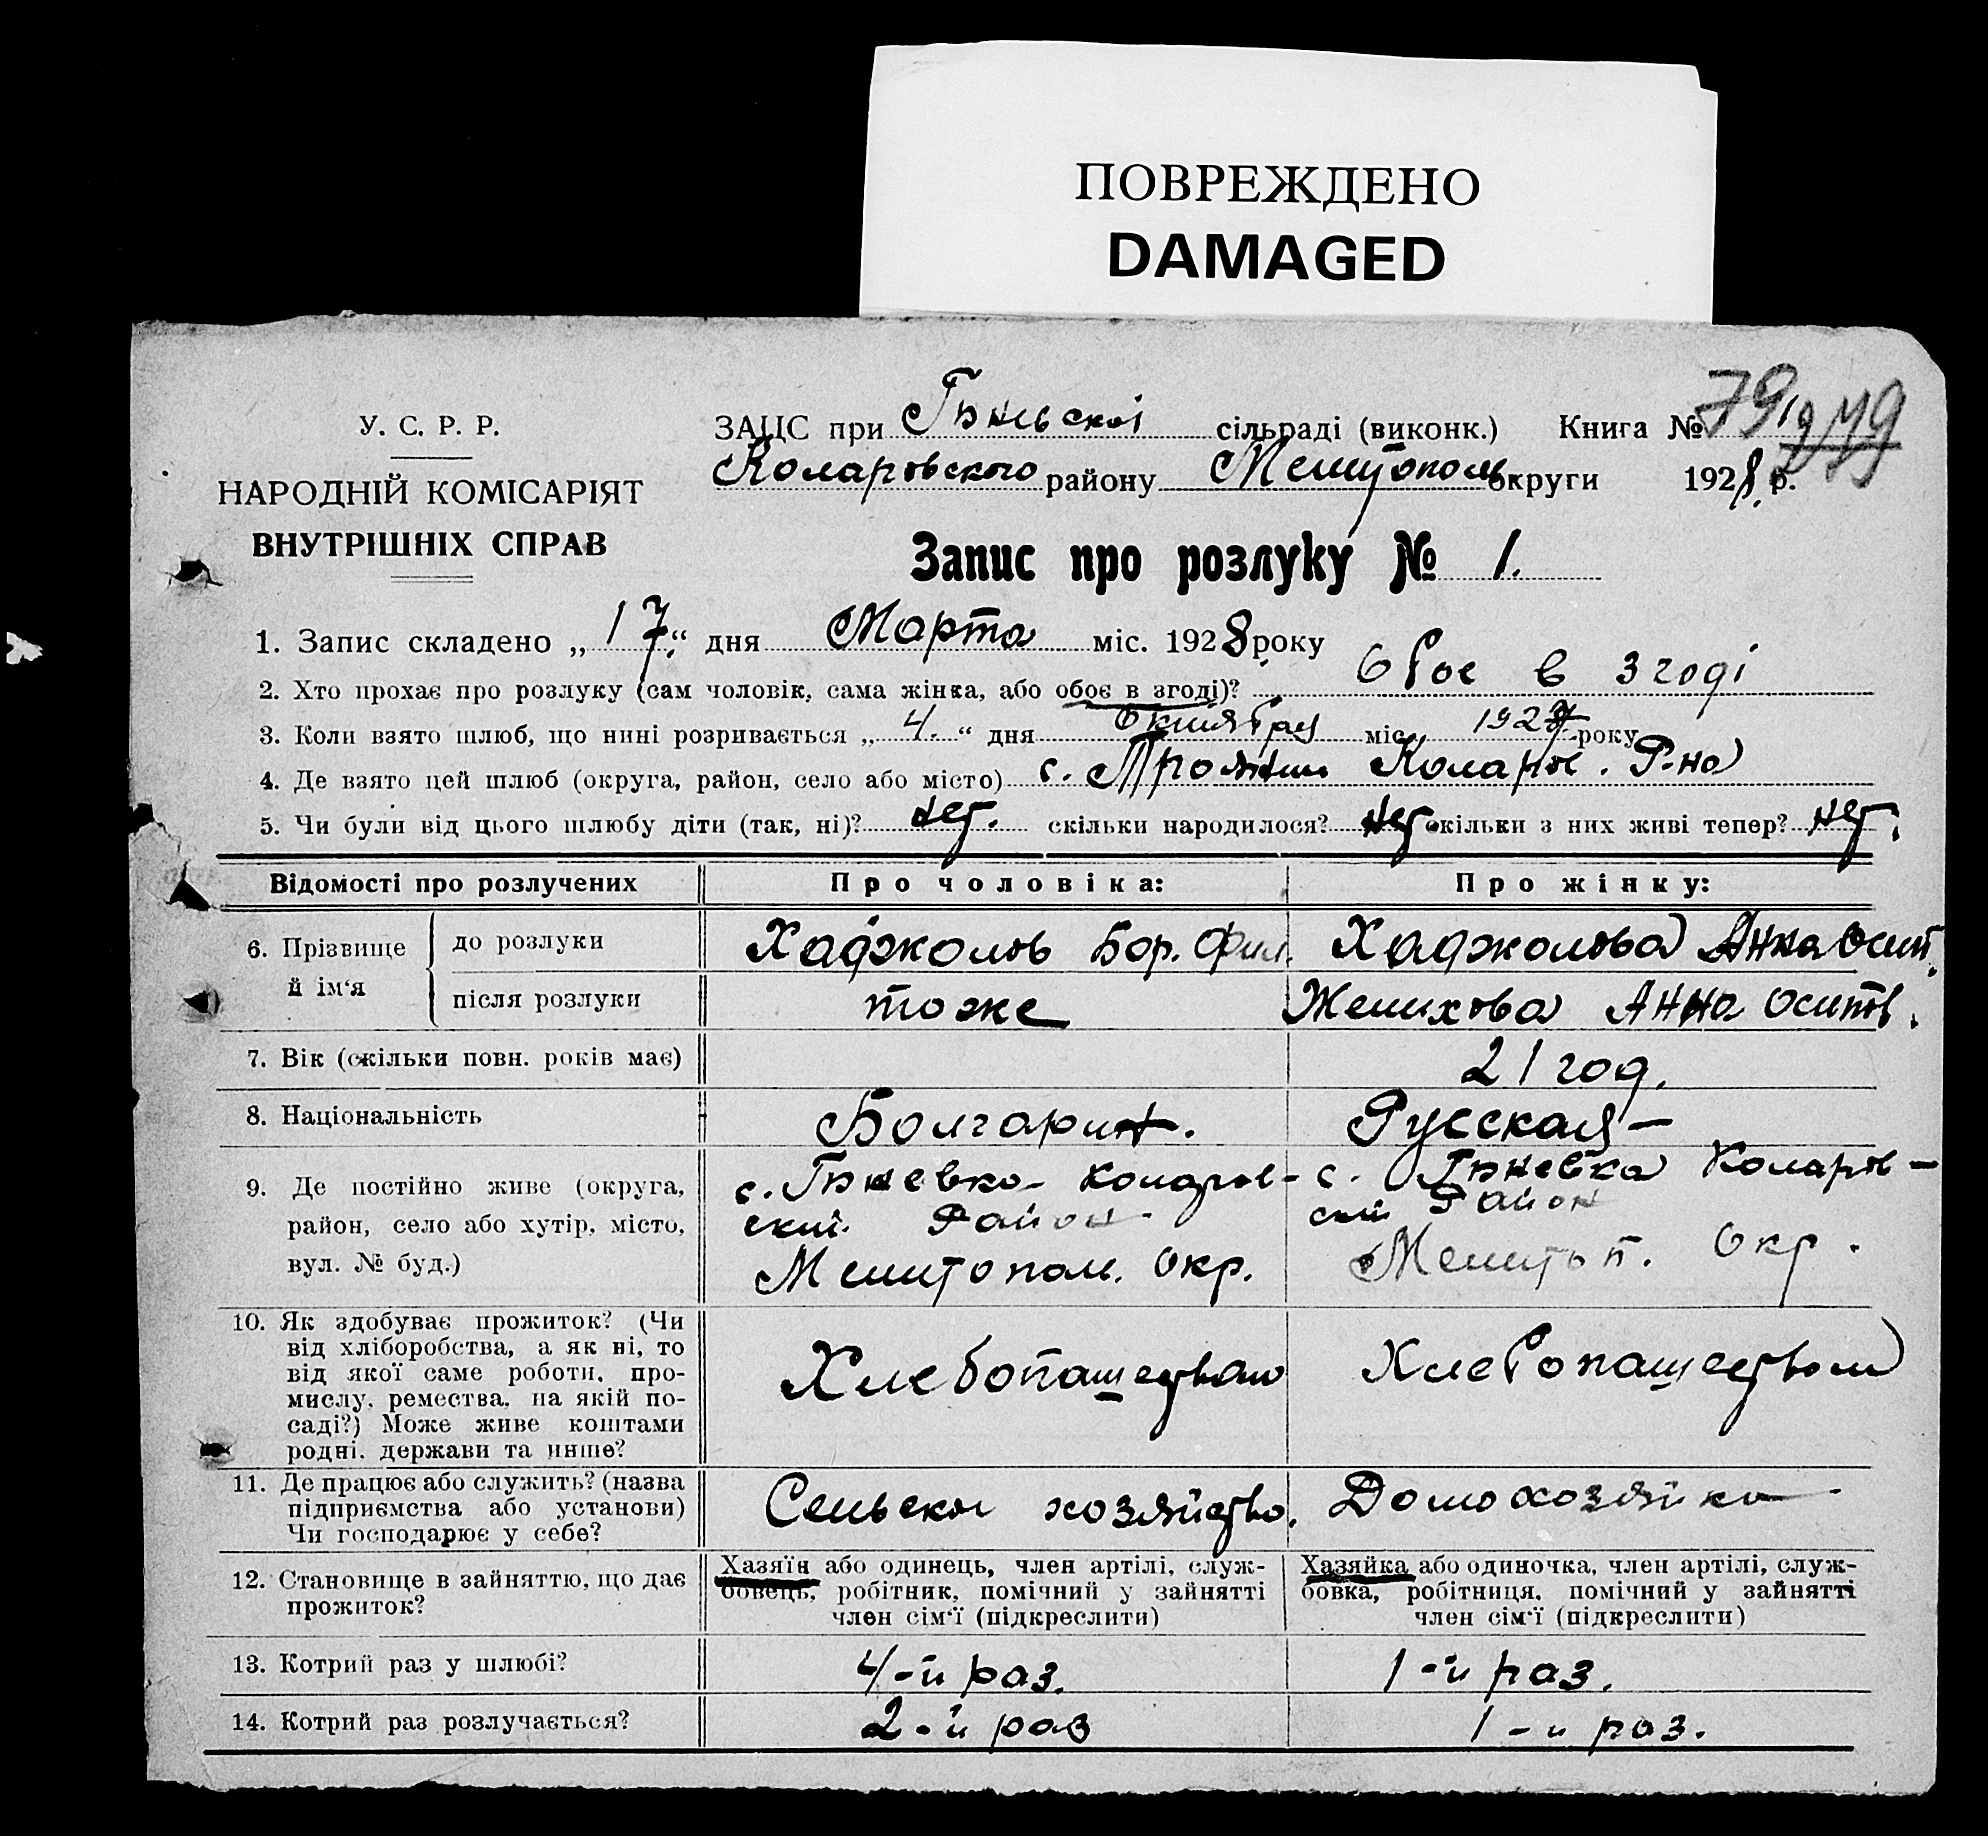 ПОВРЕЖДЕНО
DAMAGED
У. С. Р. Р.
НАРОДНІЙ КОМІСАРІЯТ
ВНУТРІШНІХ СПРАВ
ЗАЦС при Гюневскої сільраді (виконк.) Книга № 79
Коларовского району Мелитополь округи 1928 р.
Запис про розлуку № 1.
1. Запис складено „17“ дня Марта міс. 1928 року
2. Хто прохає про розлуку (сам чоловік, сама жінка, або обоє в згоді)? Обоє в згоді
3. Коли взято шлюб, що нині розривається „4.“ дня Октября міс. 1927 року
4. Де взято цей шлюб (округа, район, село або місто) с. Трояни Коларов. Р-на
5. Чи були від цього шлюбу діти (так, ні)? нет. скільки народилося? нет скільки з них живі тепер? нет.
Відомості про розлучених Про чоловіка: Про жінку:
6. Прізвище й ім‘я
до розлуки Хаджолов Бор. Фил. Хаджолова Анна Осип.
після розлуки тоже Женихова Анна Осипов.
7. Вік (скільки повн. років має) 21 год.
8. Національність Болгарин. Русская
9. Де постійно живе (округа, район, село або хутір, місто, вул. № буд.)
с. Гюневка Коларов-
ский Район
Мелитополь. Окр.
с. Гюневка Коларов-
ский Район
Мелитоп. Окр.
10. Як здобуває прожиток? (Чи
від хліборобства, а як ні, то
від якої саме роботи, про-
мислу, ремества, на якій по-
саді?) Може живе коштами
родні, держави та инше?
Хлебопашеством Хлебопашеством
11. Де працює або служить? (назва
підприємства або установи)
Чи господарює у себе?
Сельское хозяйство. Домохозяйка
12. Становище в зайняттю, що дає
прожиток?
Хазяїн або одинець, член артілі, служ-
бовець, робітник, помічний у зайнятті
член сім‘ї (підкреслити)
Хазяйка або одиночка, член артілі, служ-
бовка, робітниця, помічний у зайнятті
член сім‘ї (підкреслити)
13. Котрий раз у шлюбі? 4-й раз. 1-й раз.
14. Котрий раз розлучається? 2-й раз 1-й раз.